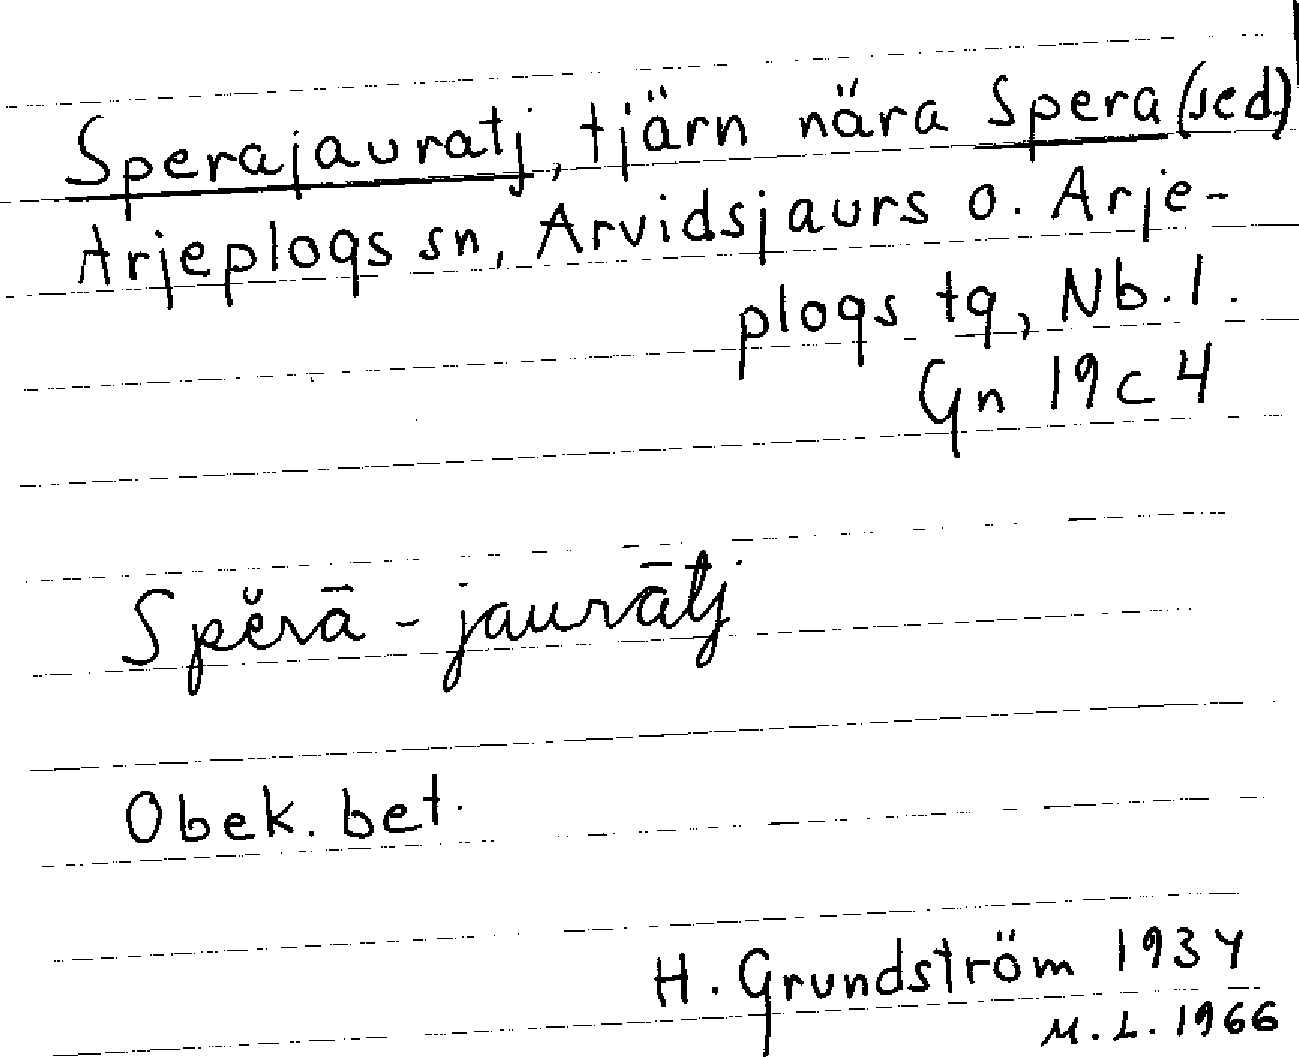 Sperajauratj, tjärn nära Spera (sed)
Arjeplogs sn, Arvidsjaurs o. Arje-
plogs tg, Nb. l.
Gn 19c4
Spĕrā - jaurātj
Obek. bet.
H. Grundström 1934
M. L. 1966